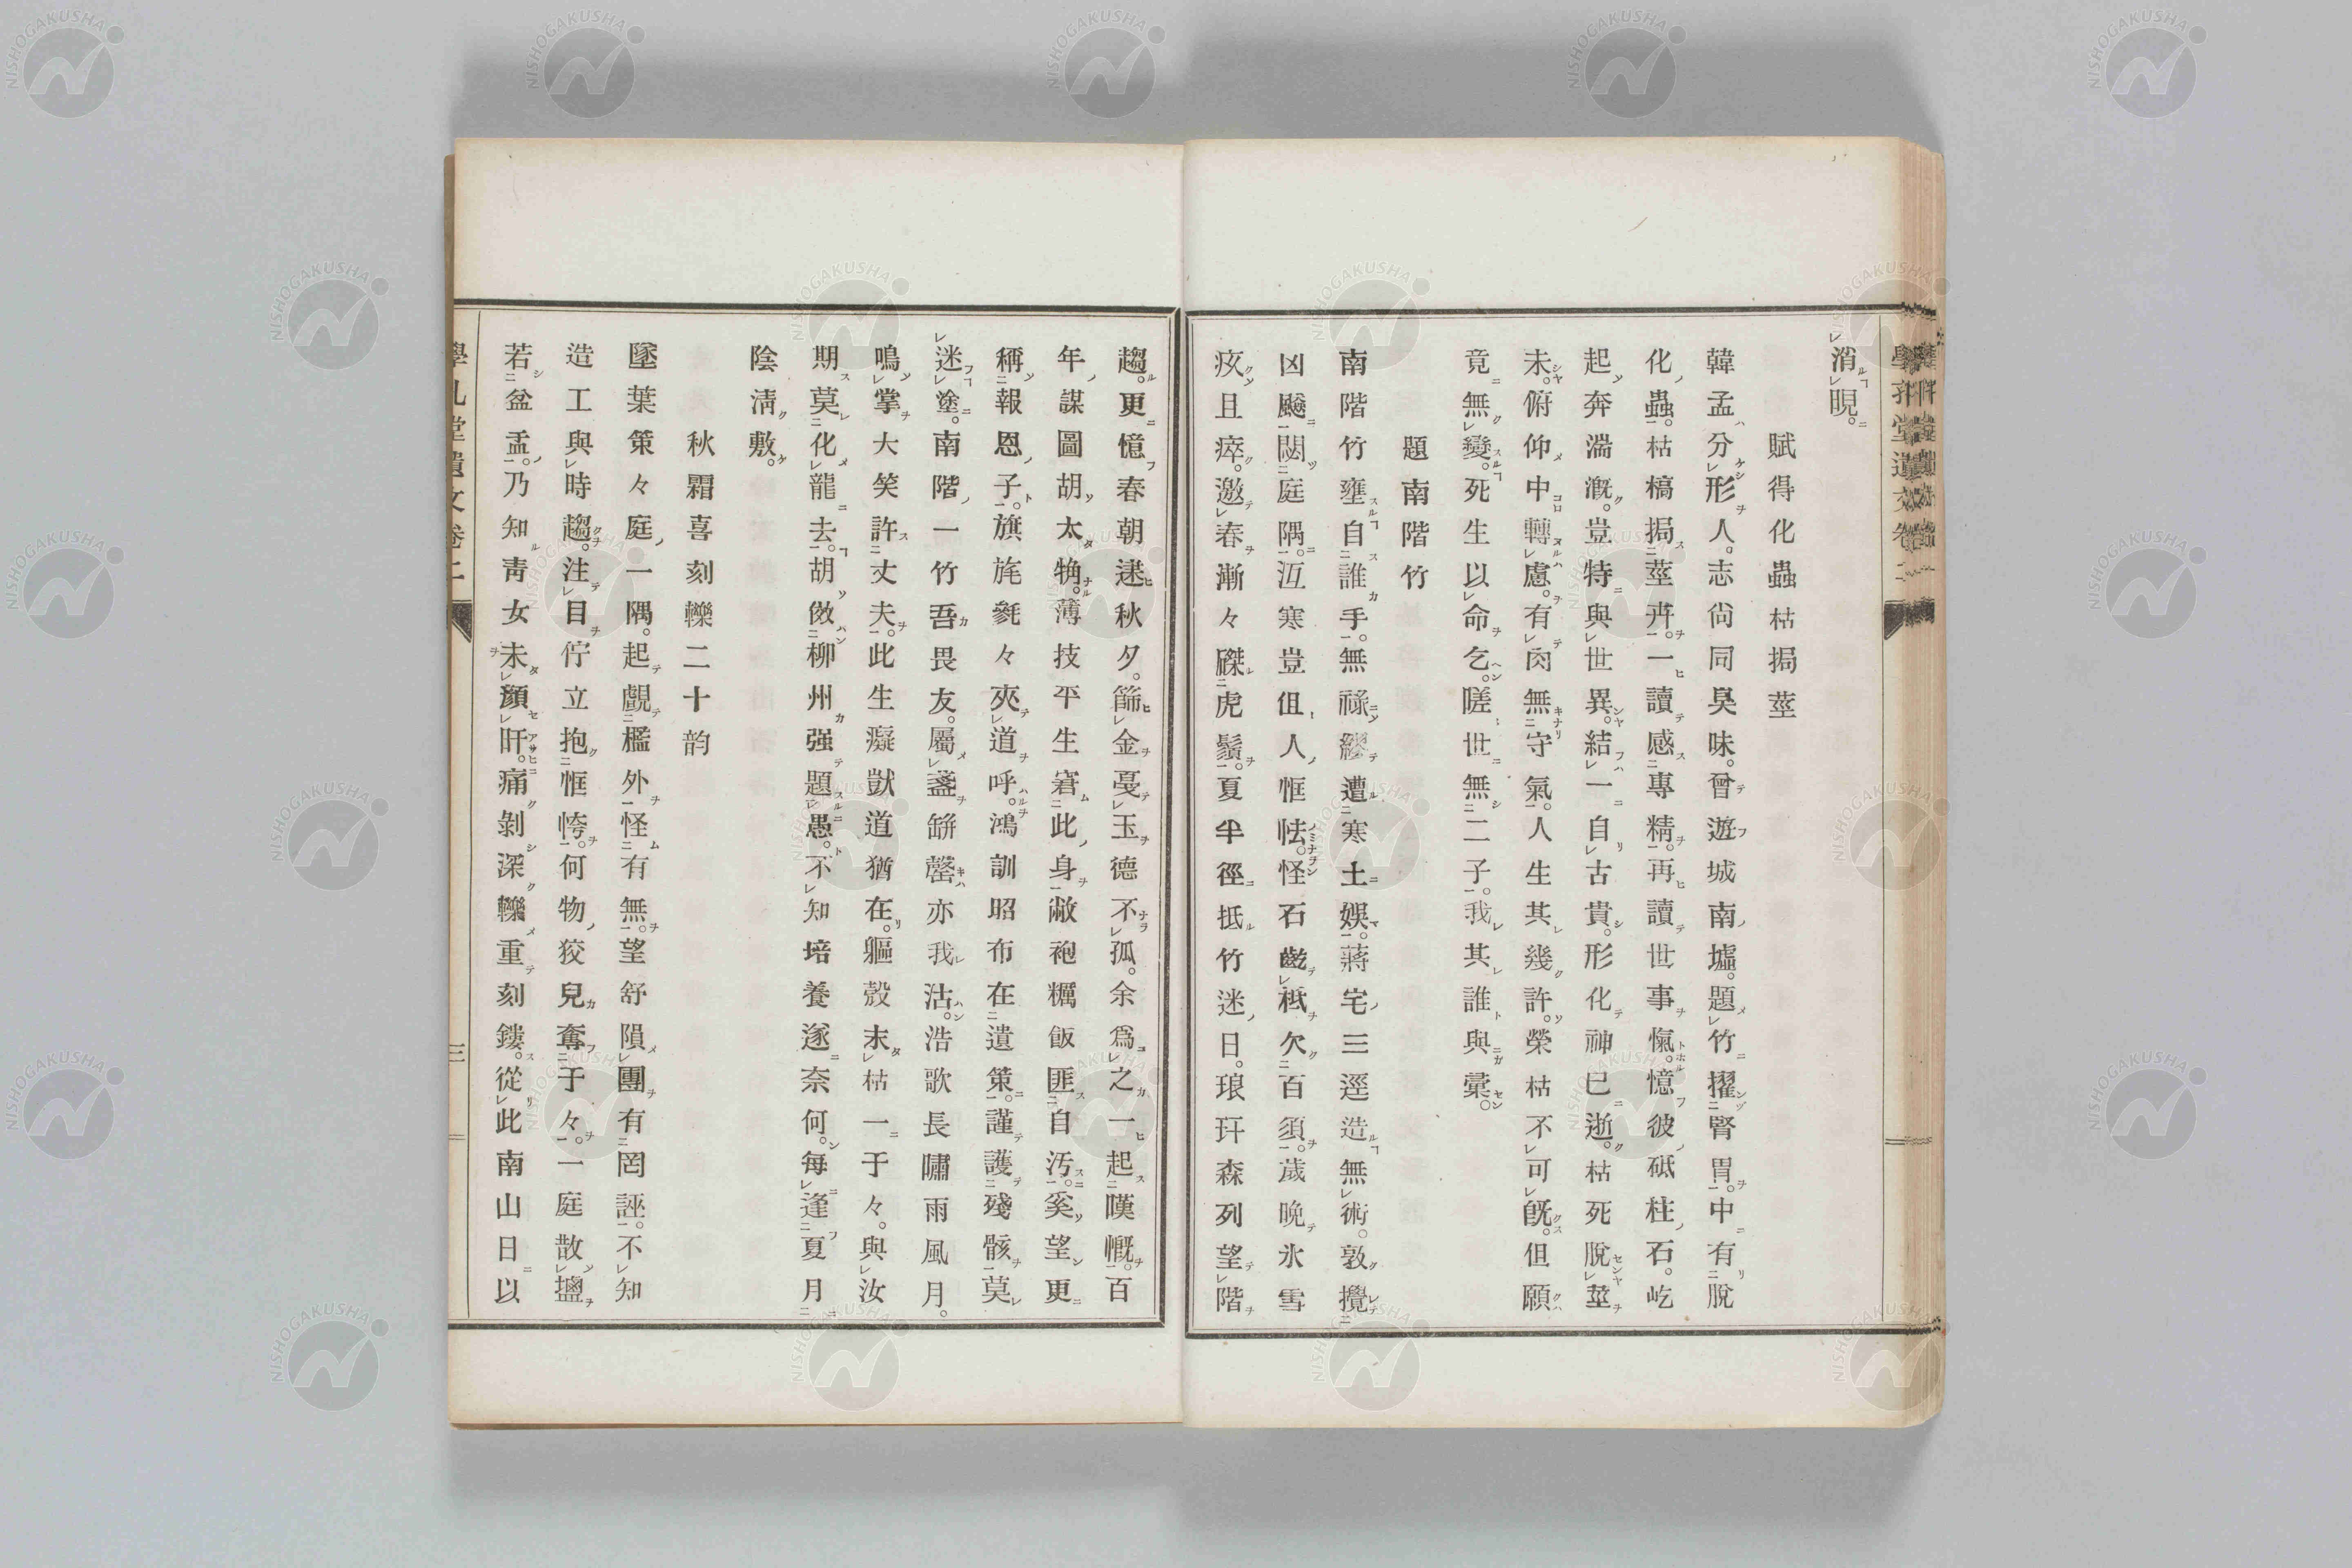 消晛。
賦得化蟲枯搊莖
韓孟分形人。志尙同臭味。曾遊城南墟。題竹擢腎胃。中有脫
化蟲。枯槁搊莖卉。一讀感專精。再讀世事愾。憶彼砥柱石。屹
起奔湍漑。豈特與世異。結一自古貴。形化神已逝。枯死脫莖
未。俯仰中轉慮。有肉無守氣。人生其幾許。榮枯不可旣。但願
竟無變。死生以命乞。嗟世無二子。我其誰與彙。
題南階竹
南階竹壅自誰手。無祿繆遭寒土娛。蔣宅三逕造無術。敦攪
凶飈閟庭隅。沍寒豈伹人恇怯。怪石齮柢欠百須。歲晚氷雪
疚且瘁。邀春漸々磔虎鬚。夏半徑抵竹迷日。琅玕森列望階
趨。更憶春朝逑秋夕。篩金戞玉德不孤。余爲之一起嘆慨。百
年謀圖胡太觕。薄技平生窘此身。敝袍糲飯匪自汚。奚望更
稱報恩子。旗旄毿々夾道呼。鴻訓昭布在遺策。謹護殘骸莫
迷塗。南階一竹吾畏友。屬盞缾罄亦我沽。浩歌長嘯雨風月。
鳴掌大笑許丈夫。此生癡獃道猶在。軀殼未枯一于々。與汝
期莫化龍去。胡傚柳州强題愚。不知培養逐奈何。每逢夏月
陰淸敷。
秋霜喜刻轢二十韵
墜葉策々庭一隅。起覰檻外怪有無。望舒隕團有罔誣。不知
造工與時趨。注目佇立抱恇恡。何物狡兒奪于々。一庭散鹽
若盆盂。乃知靑女未顏盰。痛剝深轢重刻鏤。從此南山日以
學孔堂遺文卷二
三